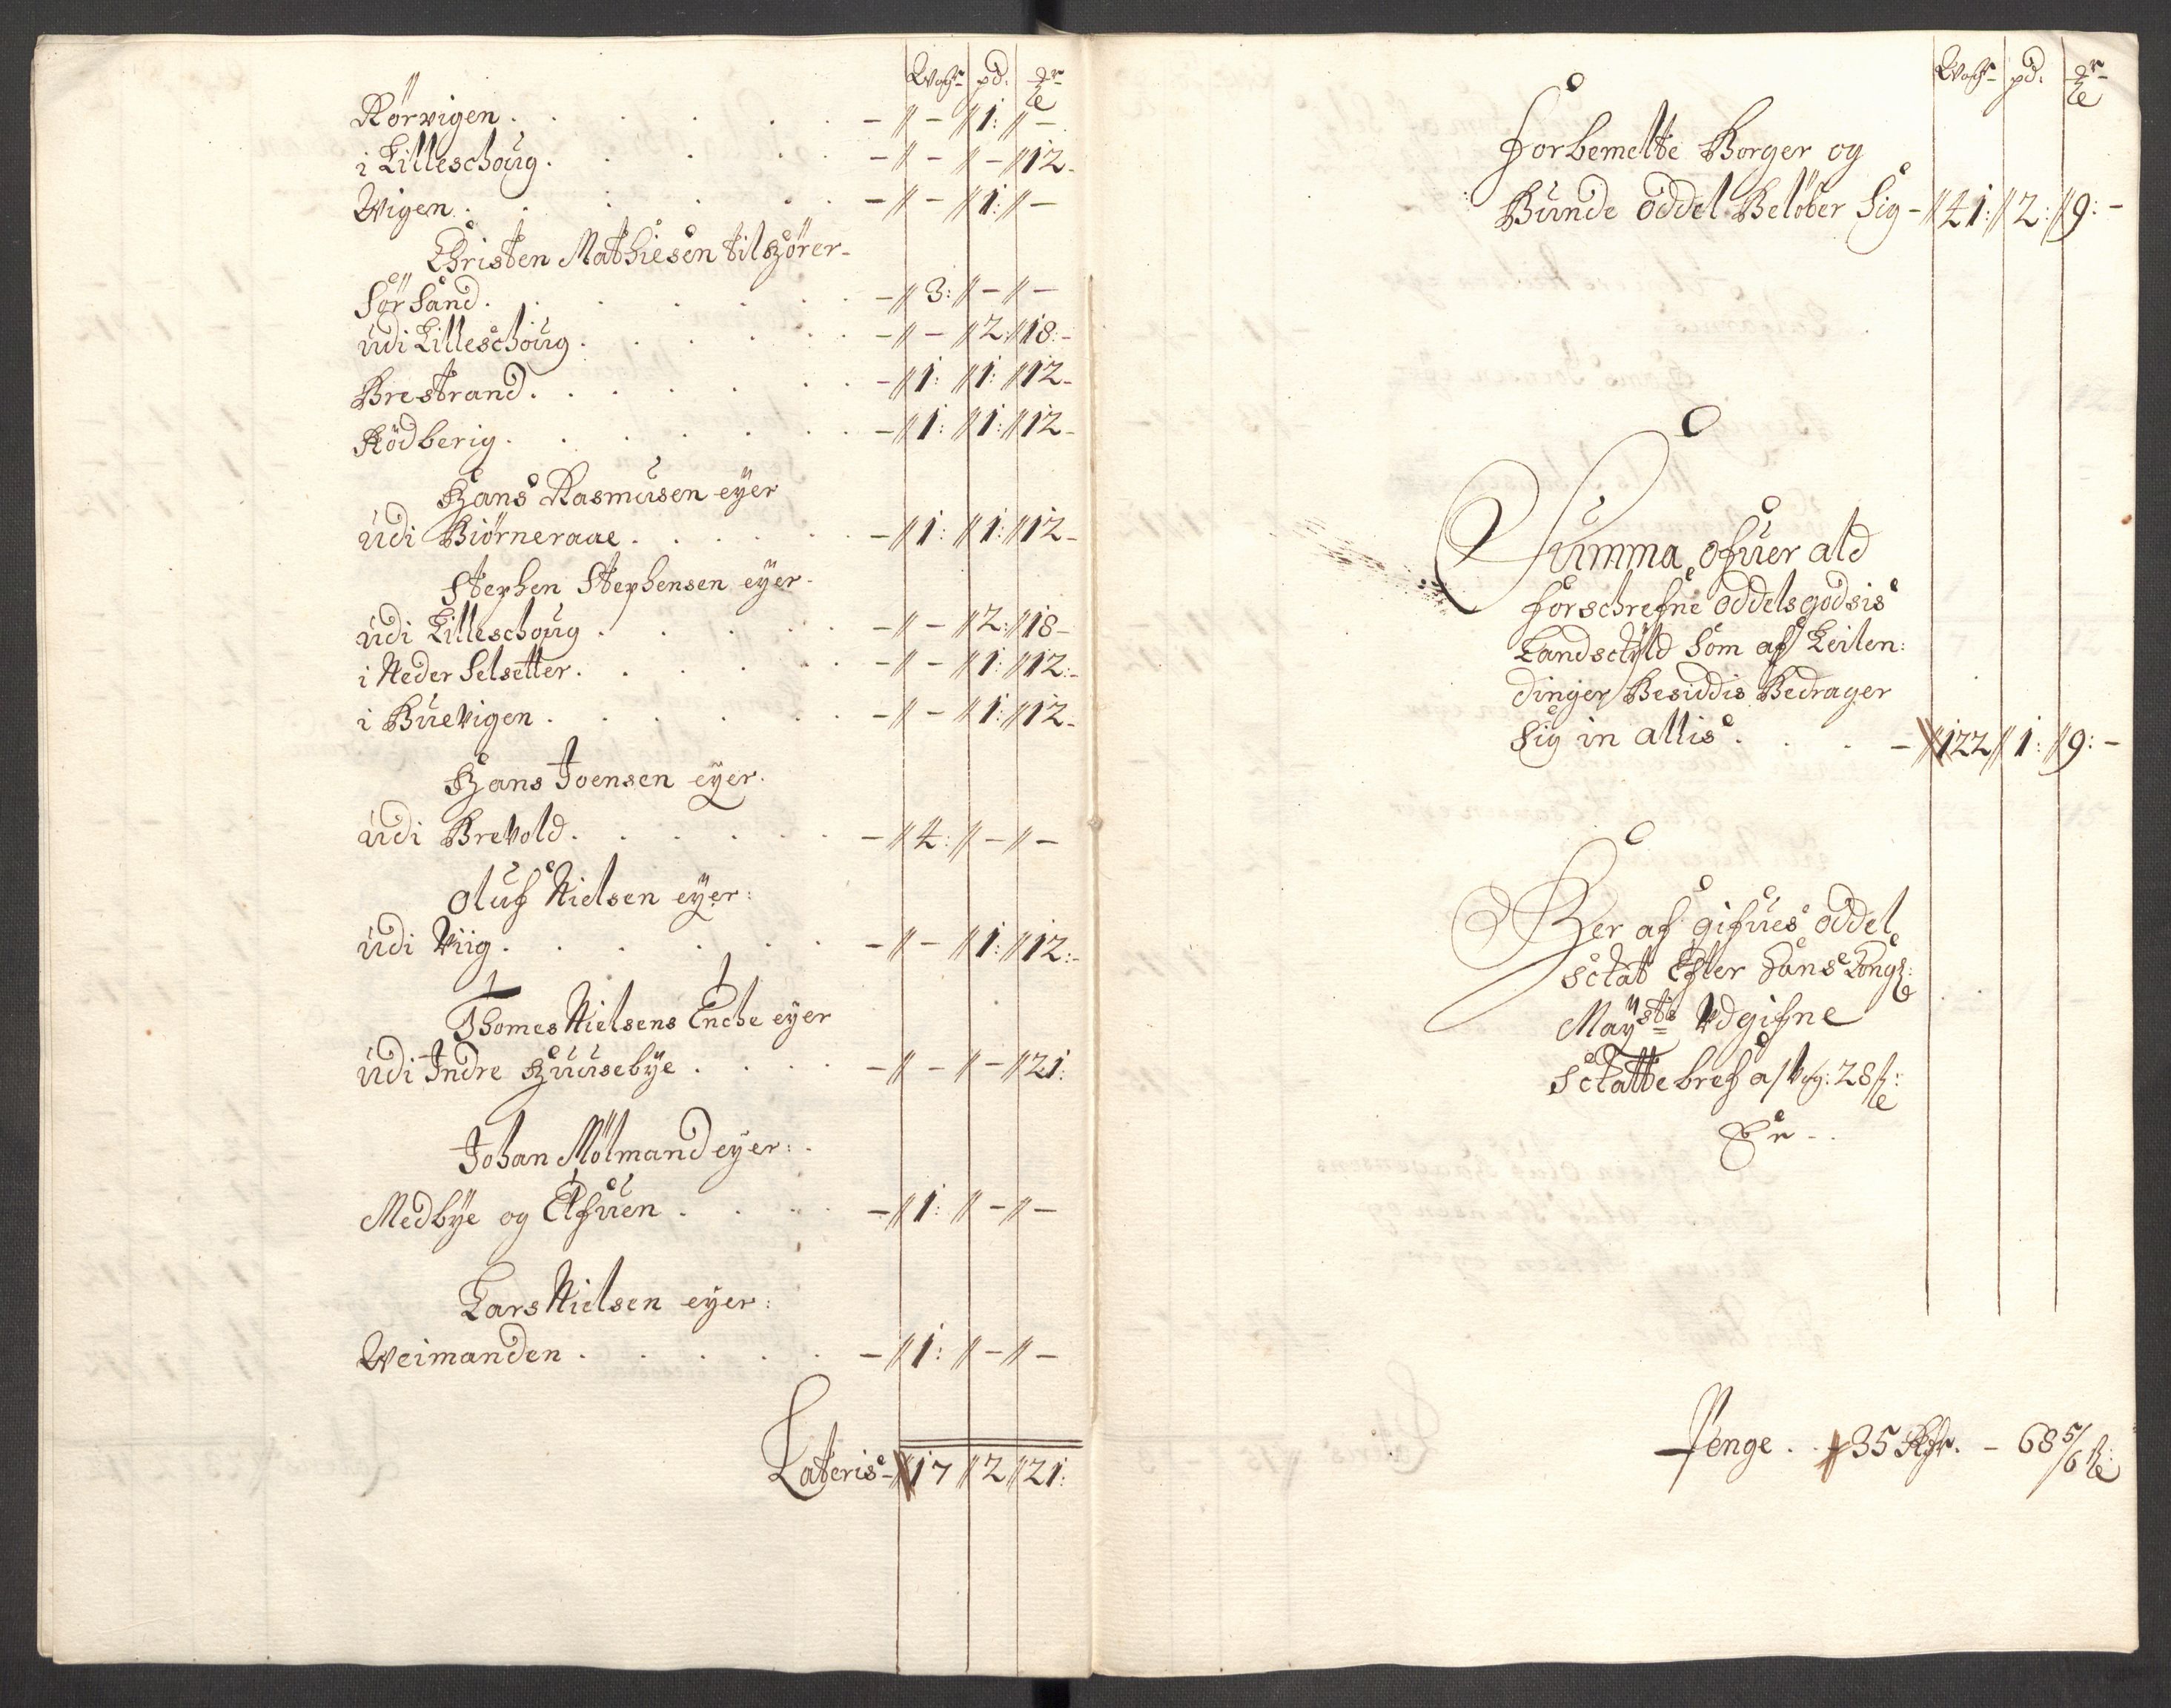 Wog pd: mk
Rörvigen . . . . . . . — // — // 1: // —
i Lilleschoug . . . . . . — // — // — // 12 -
Wigen . . . . . . . — // — // 1: // —
Christen Mathiesen tilhörer -
Sör Sand . . . . . . . — // 3: // — // —
udi Lilleschoug . . . . . . — // — // 2: // 18: -
Brestrand . . . . . . . — // 1: // 1: // 12 -
Rödberig . . . . . . . — // 1: // 1: // 12 -
Hans Rasmusen eÿer
udi Biörneraae . . . . . . — // 1: // 1: // 12 -
Stephen Stephensen eÿer -
udi Lilleschoug . . . . . . — // — // 2: // 18 -
i Neder Selsetter . . . . . . — // — // 1: // 12: -
i Buevigen . . . . . . . — // — // 1: // 12 -
Hans Joensen eÿer.
udi Brevold . . . . . . — // 4: // — // —
Oluf Nielsen eÿer:
udi Viig . . . . . . . — // — // 1: // 12: -
Thomes Nielsens Enche eÿer
udi Indre Huusebÿe . . . . — // — // — // 21:
Johan Mölmand eÿer: .
Medbÿe og Elfuen . . . . — // 1: // — // —
Lars Nielsen eÿer:
Weimanden . . . . . . — // 1: // — // —
Lateris - // 17 // 2 // 21:
Wog pd: mk
Forbemelte Borger og
Bunde oddel Belöber Sig - // 41: // 2: // 9: -
Summa ofuer ald
forschrefne oddelsgodsis
Landschÿld Som af Leilen:
dinger Besiddis Bedrager
Sig in allis . . . . — // 122 // 1: // 9: -
Her af gifues oddel
Schat Efter Hans Kongl:
Maÿsts Udgifne
Schattebref a / Vog: 28 s:
Er - .
Penge . . // 35 Rdr. - 68 5/6 s: